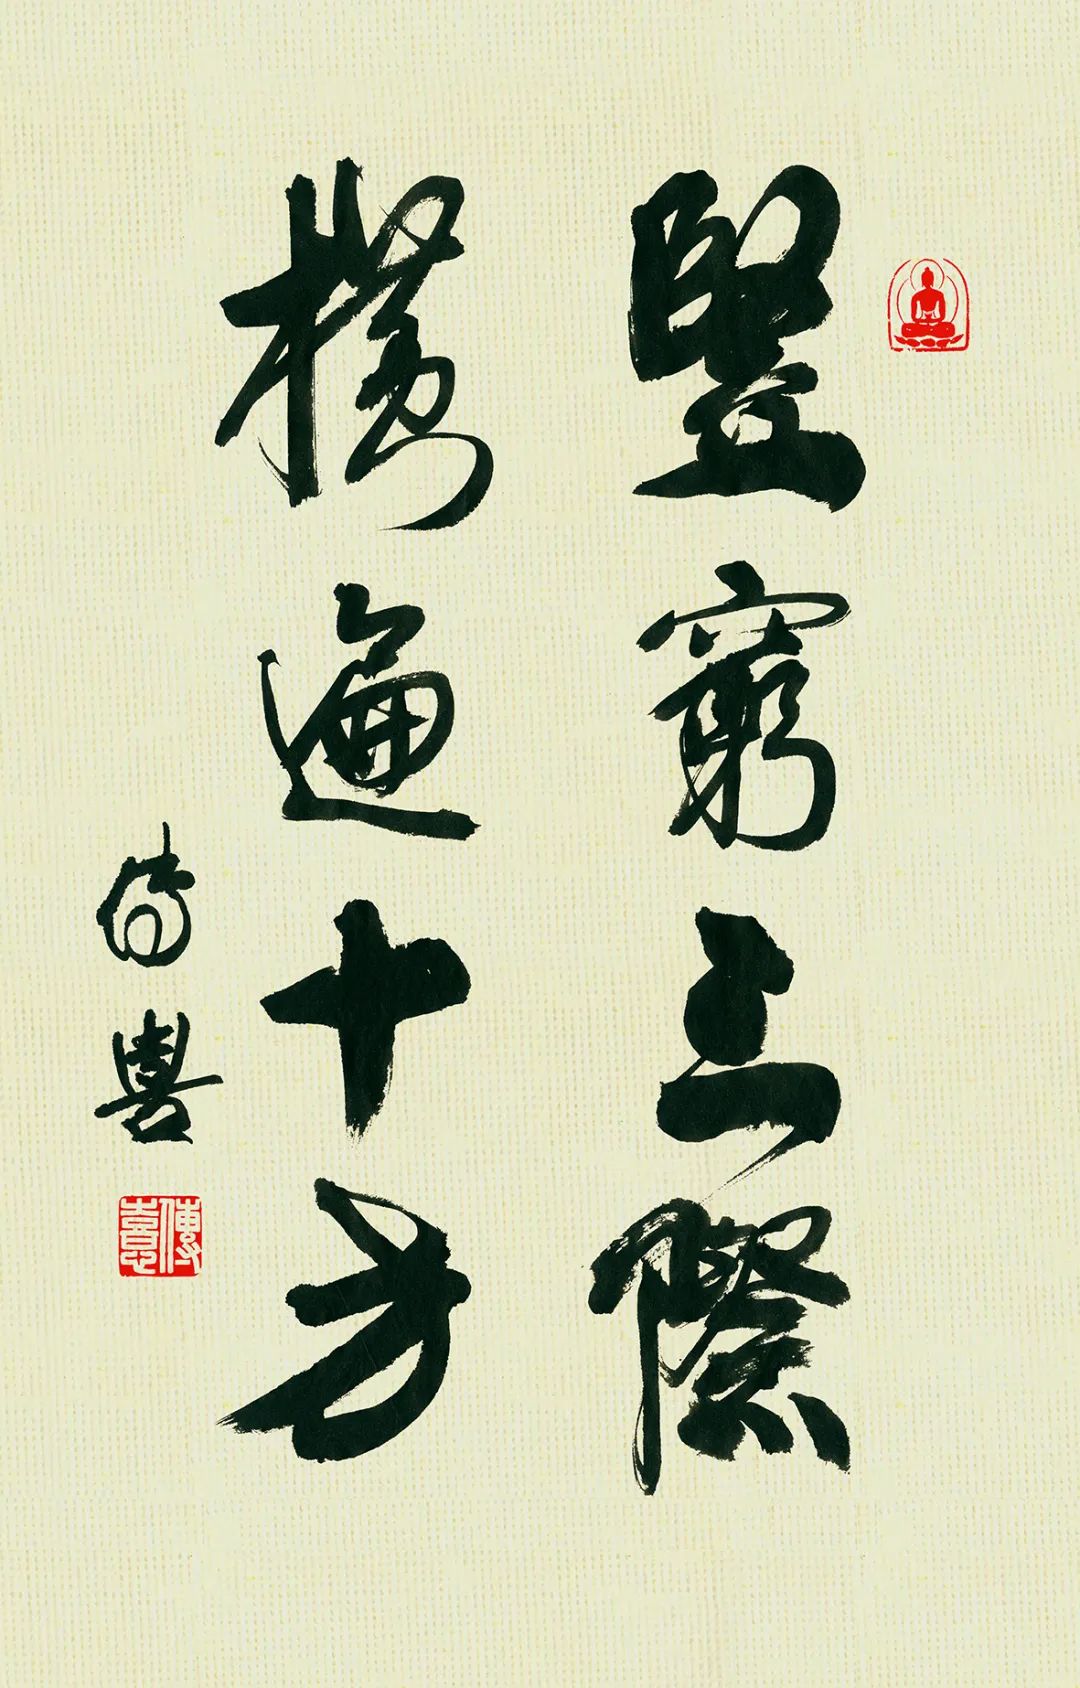 竪窮三際
橫遍十方
傳喜
傳喜